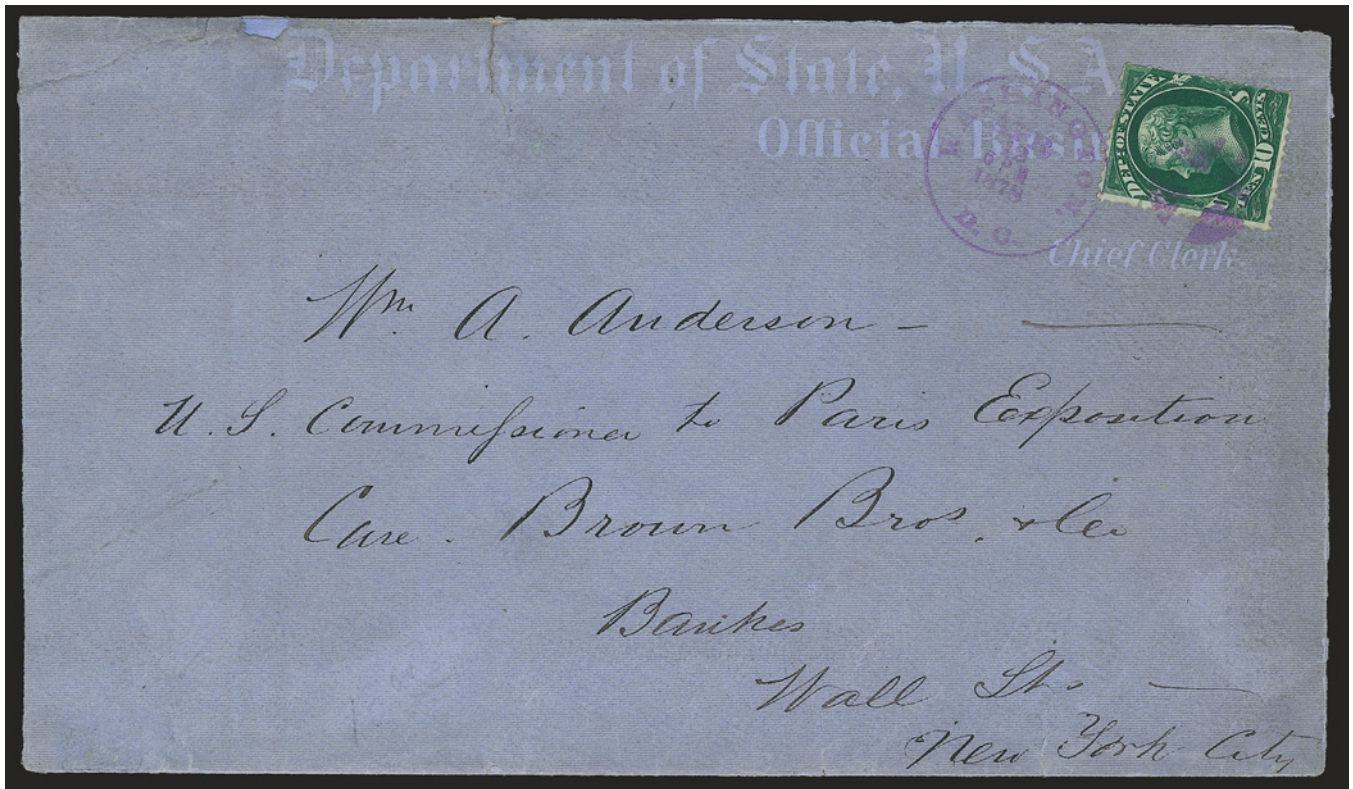 Department of State, U. S. A.
Official Busin
WASHINGTON.
1878
D. C.
DEP. OF STATE
10
Chief Clerk.
Wm. A. Anderson -
U. S. Commissioner to Paris Exposition
Care. Brown Bros. & Co
Bankes
Wall St.
New York City